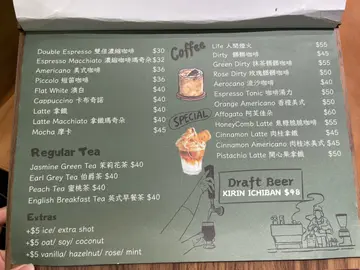 Coffee
Double Espresso 雙倍濃縮咖啡 $30
Espresso Macchiato 濃縮咖啡瑪奇朵 $32
Americano 美式咖啡 $35
Piccolo 短笛咖啡 $36
Flat White 澳白 $40
Cappuccino 卡布奇諾 $40
Latte 拿鐵 $40
Latte Macchiato 拿鐵瑪奇朵 $40
Mocha 摩卡 $45
Regular Tea
Jasmine Green Tea 茉莉花茶 $40
Earl Grey Tea 伯爵茶 $40
Peach Tea 蜜桃茶 $40
English Breakfast Tea 英式早餐茶 $40
Extras
+$5 ice/ extra shot
+$5 oat/ soy/ coconut
+$5 vanilla/ hazelnut/ rose/ mint
SPECIAL
Life 人間煙火 $55
Dirty 髒髒咖啡 $45
Green Dirty 抹茶髒髒咖啡 $55
Rose Dirty 玫瑰髒髒咖啡 $50
Aerocano 流沙咖啡 $40
Espresso Tonic 咖啡湯力 $50
Orange Americano 香橙美式 $50
Affogato 阿芙佳朵 $60
HoneyComb Latte 焦糖脆脆咖啡 $50
Cinnamon Latte 肉桂拿鐵 $45
Cinnamon Americano 肉桂冰美式 $45
Pistachio Latte 開心果拿鐵 $50
Draft Beer
KIRIN ICHIBAN $98